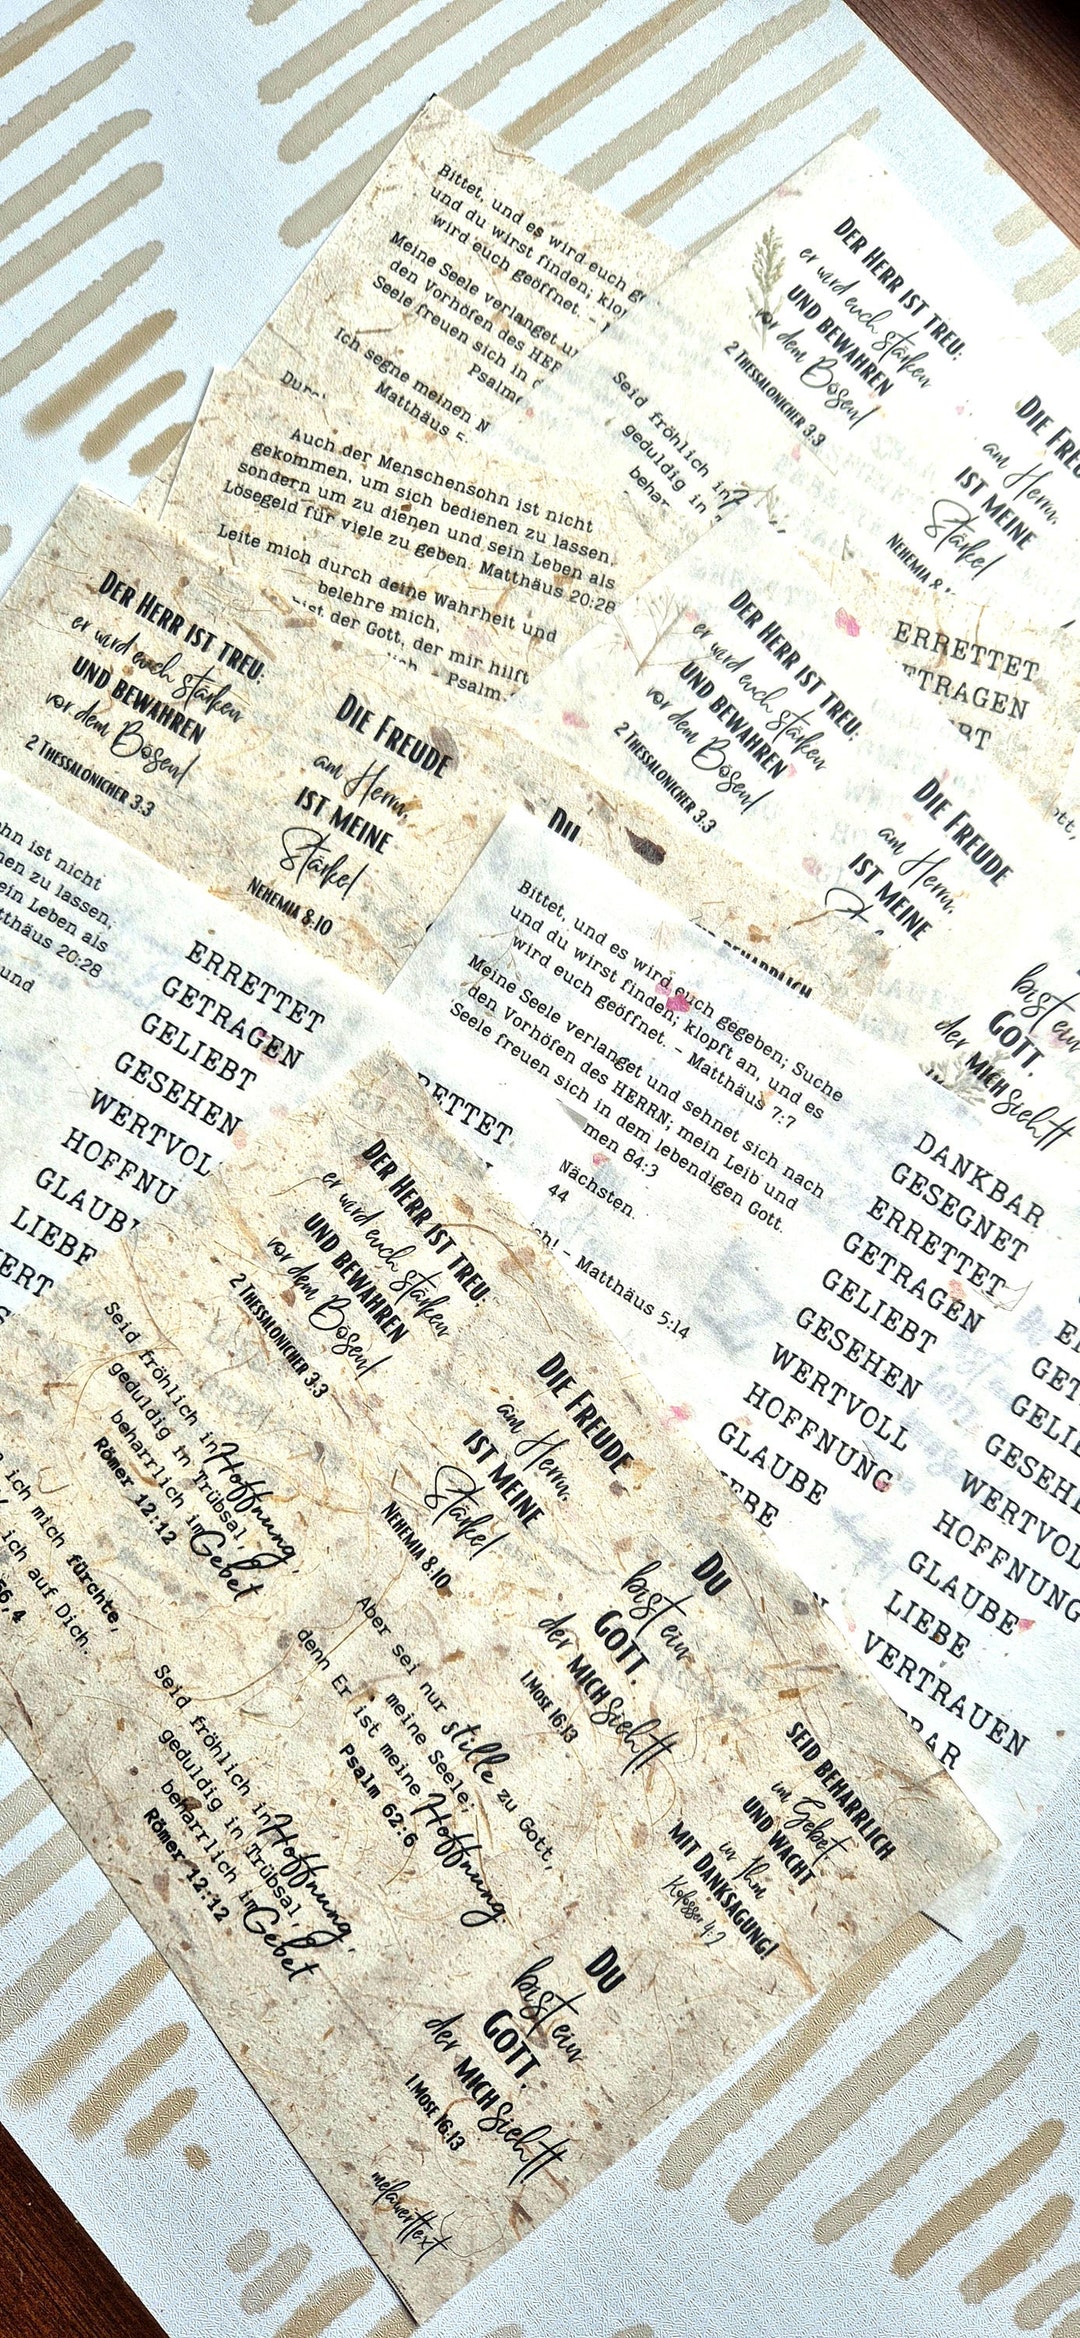 Bittet, und es wird euch
und du wirst finden;
wird euch geöffnet. -
Meine Seele verlanget
den Vorhöfen des
Seele freuen sich in
Ich segne meinen
Matthäus
DER HERR IST TREU;
er wird euch stärken
UND BEWAHREN
vor dem Bösen!
2 THESSALONICHER 3:3
DIE
am Herrn,
IST MEINE
Stärke!
NEHEMIA
Seid fröhlich in
geduldig in
Auch der Menschensohn ist nicht
gekommen, um sich bedienen zu lassen,
sondern um zu dienen und sein Leben als
Lösegeld für viele zu geben. Matthäus 20:28
Leite mich durch deine Wahrheit und
belehre mich,
ist der Gott, der mir hilft
- Psalm
ERRETTET
DER HERR IST TREU;
er wird euch stärken
UND BEWAHREN
vor dem Bösen!
2 THESSALONICHER 3:3
DIE FREUDE
am Herrn,
IST MEINE
Stärke!
NEHEMIA 8:10
DER HERR IST TREU;
er wird euch stärken
UND BEWAHREN
vor dem Bösen!
2 THESSALONICHER 3:3
DIE FREUDE
am Herrn,
IST MEINE
bist ein
GOTT,
der MICH sieht!
ist nicht
zu lassen,
Leben als
20:28
und
ERRETTET
GETRAGEN
GELIEBT
GESEHEN
LIEBE
Bittet, und es wird euch gegeben; Suche
und du wirst finden; klopft an, und es
wird euch geöffnet. - Matthäus 7:7
Meine Seele verlanget und sehnet sich nach
den Vorhöfen des HERRN; mein Leib und
Seele freuen sich in dem lebendigen Gott.
84:3
Nächsten.
44
- Matthäus 5:14
DANKBAR
GESEGNET
ERRETTET
GETRAGEN
GELIEBT
GESEHEN
WERTVOLL
HOFFNUNG
GLAUBE
HOFFNUNG
GLAUBE
LIEBE
VERTRAUEN
DER HERR IST TREU;
er wird euch stärken
UND BEWAHREN
vor dem Bösen!
2 THESSALONICHER 3:3
DIE FREUDE
am Herrn,
IST MEINE
Stärke!
NEHEMIA 8:10
DU
bist ein
GOTT,
der MICH sieht!
1.MOSE 16:13
SEID BEHARRLICH
im Gebet
UND WACHT
in Ihm
MIT DANKSAGUNG!
Kolosser 4:2
Seid fröhlich in Hoffnung,
geduldig in Trübsal,
beharrlich im Gebet
Römer 12:12
ich mich fürchte,
ich auf Dich.
56,4
Aber sei nur stille zu Gott,
meine Seele;
denn Er ist meine Hoffnung.
Psalm 62:6
Seid fröhlich in Hoffnung,
geduldig in Trübsal,
beharrlich im Gebet
Römer 12:12
DU
bist ein
GOTT,
der MICH sieht!
1.MOSE 16:13
melawerttext